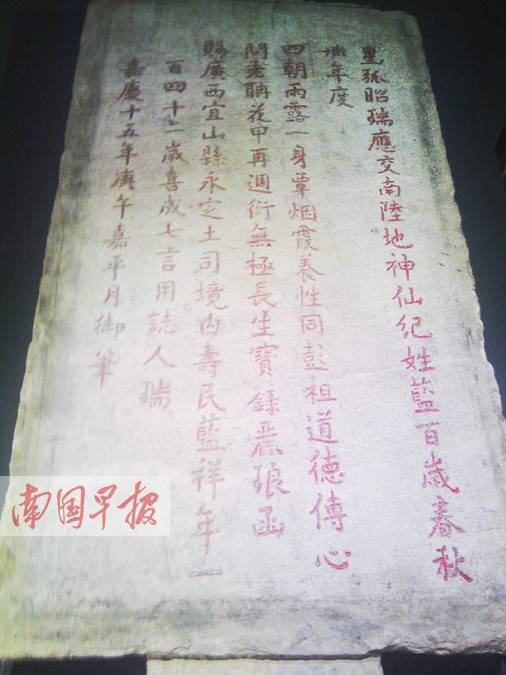 星弧昭瑞應交南陸地神仙紀姓藍百歲春秋
年度
四朝雨露一身覃烟霞養性同彭祖道德傳心
問老聃花甲再週衍無極長生寶籙麗琅函
賜廣西宜山縣永定土司境内壽民藍祥年一
百四十二歲喜成七言用誌人瑞
嘉慶十五年庚午嘉平月御筆
南国早报